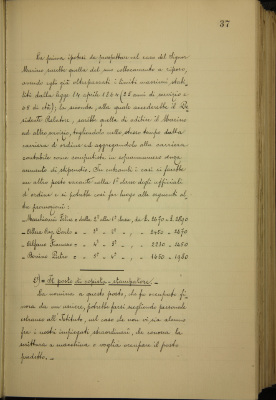 37
La prima ipotesi da prospettare nel caso del Signor
Marino sarebbe quella del suo collocamento a riposo,
avendo egli già oltrepassati i limiti massimi stabi-
liti dalla legge 14 aprile 1864 (25 anni di servizio e
di età); la seconda, alla quale accederebbe il Pre-
sidente Relatore, sarebbe quella di adibire il Marino
ad altro servizio, togliendolo nello stesso tempo dalla
carriera d'ordine ed aggregandolo alla carriera
contabile come computista in soprannumero senza
aumento di stipendio. In entrambi i casi si farebbe
un altro posto vacante nella 1ª classe degli ufficiali
d'ordine e si potrebbe così far luogo alle seguenti al-
tre promozioni:
Felice = dalla 2ª alla 1ª classe, da £.
Carlo = " 3ª " 2ª " , "
Francesco = " 4ª " 3ª " , "
Pietro = " 5ª " 4ª " , "
= Il posto di copista-stampatore. =
La nomina a questo posto, che fu occupato fi-
nora da un usciere, potrebbe farsi scegliendo personale
estraneo all'Istituto, nel caso che non vi sia alcuno
fra i nostri impiegati straordinari, che conosca la
scrittura a macchina e voglia occupare il posto
predetto. =